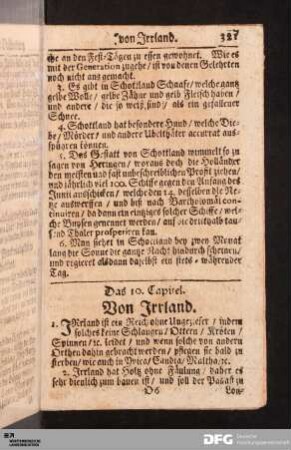 von Irrland. 321
che an den Fest-Tägen zu essen gewohnet. Wie es
mit der Generation zugehe / ist von denen Gelehrten
noch nicht ausgemacht.
3. Es gibt in Schottland Schaafe / welche gantz
gelbe Wolle / gelbe Zähne und gelb Fleisch haben /
und andere / die so weiß sind / als ein gefallener
Schnee.
4. Schottland hat besondere Hund / welche Die-
be / Mörder / und andere Ubelthäter accurat aus-
spüoren können.
5. Das Gestatt von Schottland wimmelt so zu
sagen von Heringen / woraus doch die Holländer
den meisten und fast unbeschreiblichen Profit ziehen /
und jährlich viel 100. Schiffe gegen den Anfang des
Junii ausschiffen / welche den 24. desselben die Ne-
tze antwerffen / und biß nach Bartholomäi con-
tinuiren / da dann ein eintziges solcher Schiffe / wel-
che Buysen genennet werden / auf die
send Thaler prosperiren kan.
6. Man siehet in Schottland bey zwey Monat
lang die Sonne die gantze Nacht hindurch scheinen /
und regieret alsdann daselbst ein stets-währender
Tag.
Das 10. Capitel.
Von Irrland.
1. IRrland ist ein Reich ohne Ungeziefer / indem
solches keine Schlangen / Ottern / Kröten /
Spinnen / ꝛc. leidet / und wenn solche von andern
Orthen dahin gebracht werden / pflegen sie bald zu
sterben / wie auch in Yvica / Candia / Maltha / ꝛc.
2. Irrland hat Holtz ohne Fäulung / daher es
sehr dienlich zum bauen ist / und soll der Palast zu
Lon-
DFG